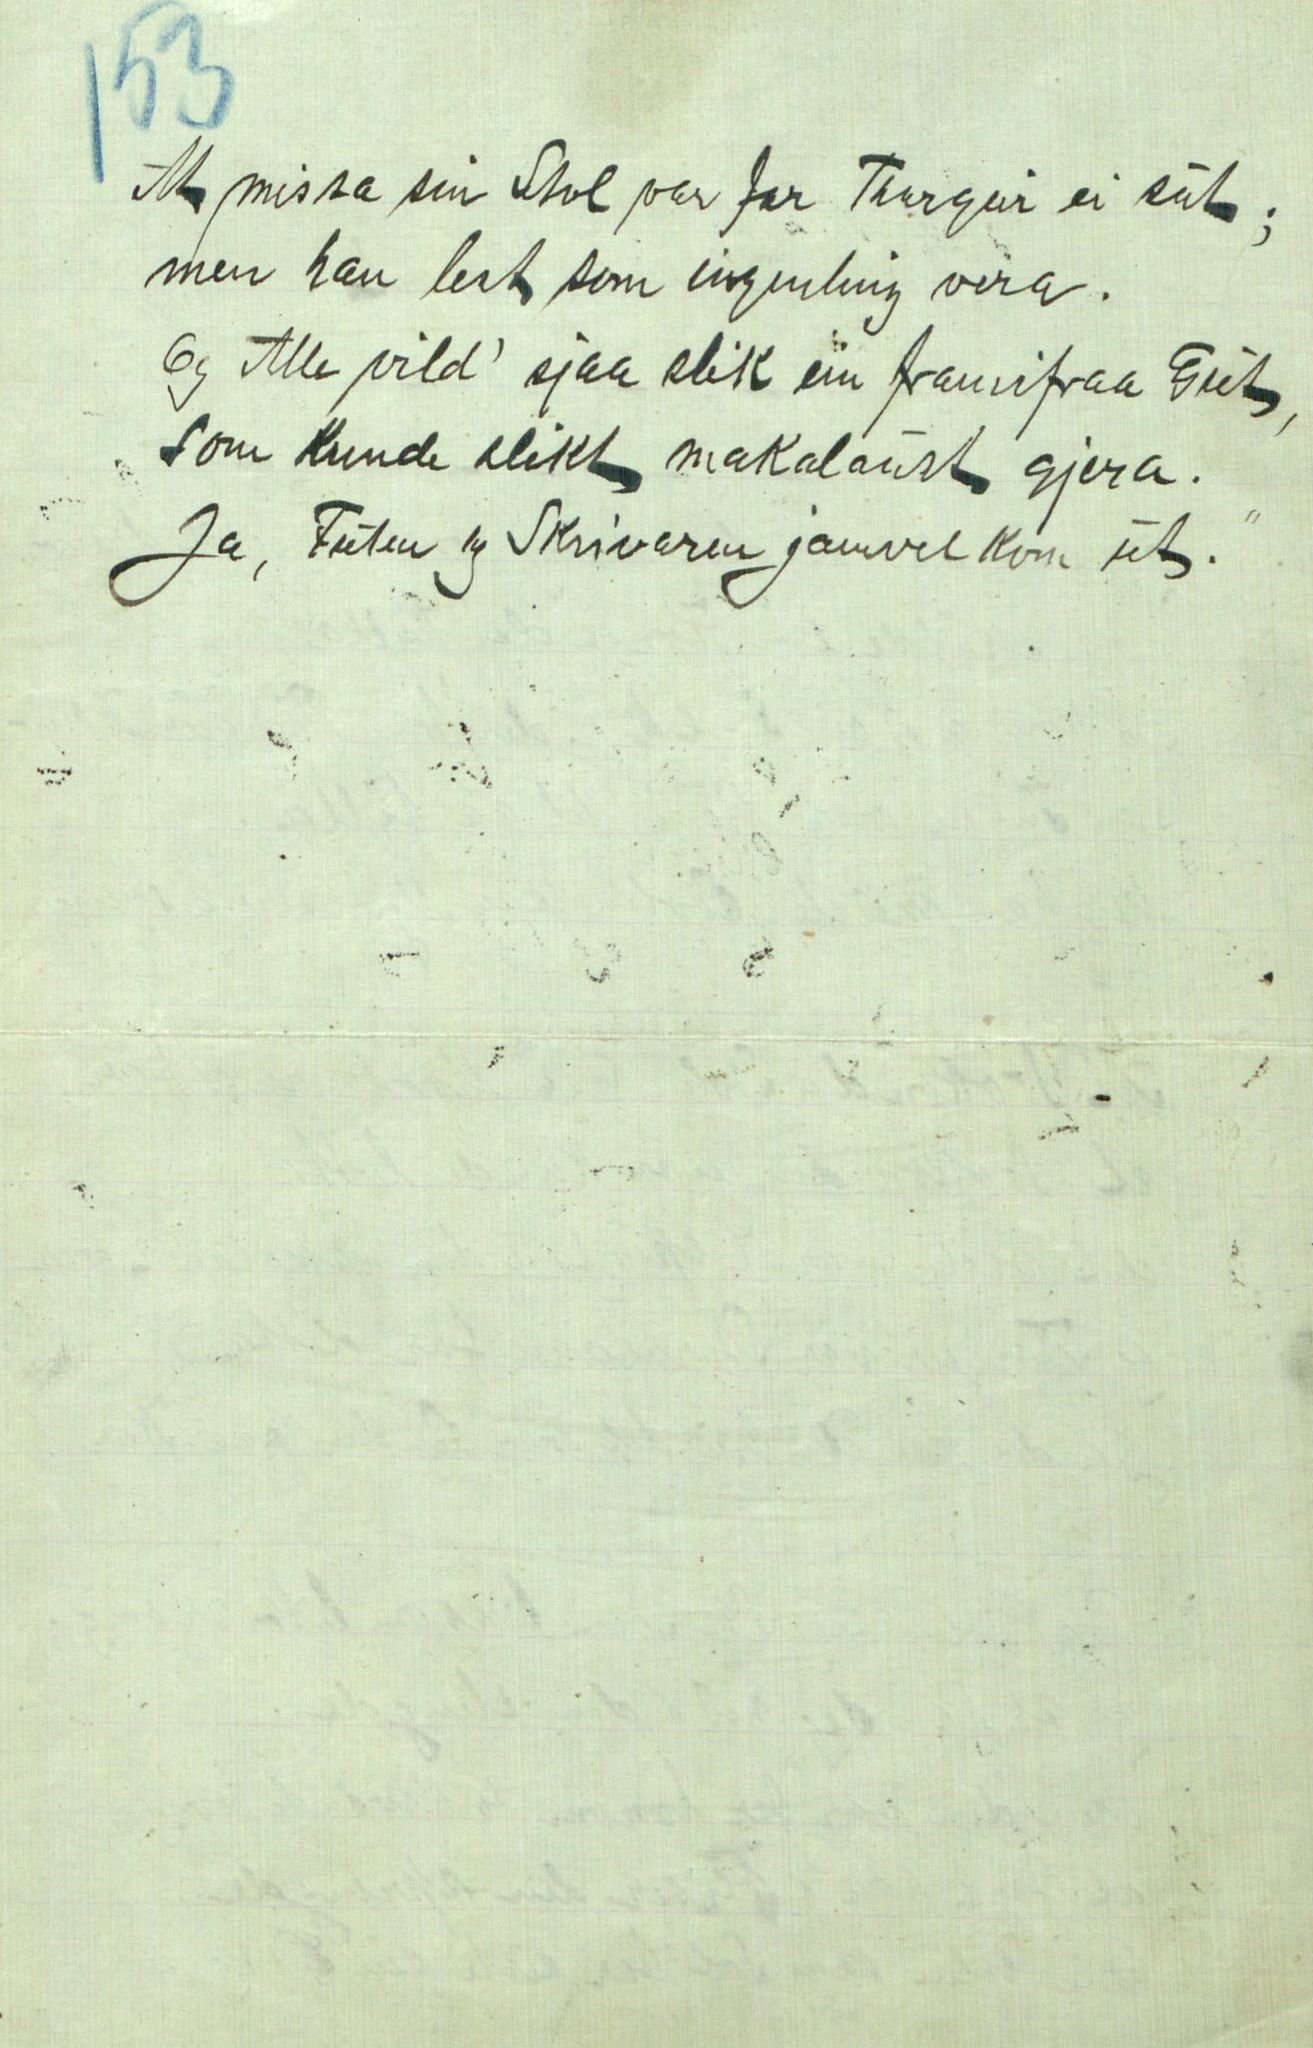 153
At missa sin Stol var for Taurgeir ei sút;
men han lest som ingenting vera.
Og Alle vild' sjaa slik ein framifraa Gut,
som kunde slikt makalaust gjera.
Ja, Futen og Skrivaren jamvel kom út."